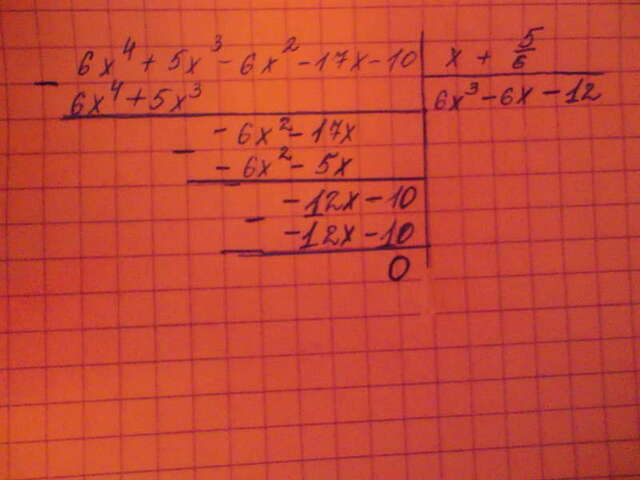 6x⁴ + 5x³ - 6x² - 17x - 10 | x + 5/6
- 6x⁴ + 5x³ | 6x³ - 6x - 12
- 6x² - 17x
- - 6x² - 5x
- 12x - 10
- - 12x - 10
0